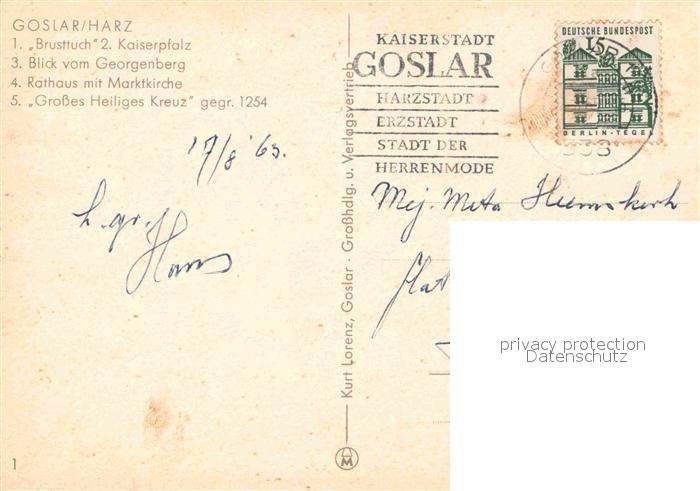 GOSLAR/HARZ
1. „Brusttuch" 2. Kaiserpfalz
3. Blick vom Georgenberg
4. Rathaus mit Marktkirche
5. „Großes Heiliges Kreuz" gegr. 1254
17/8 '65.
h. gr.
Hans
1
Kurt Lorenz, Goslar · Großhdlg. u. Verlagsvertrieb
M
KAISERSTADT
GOSLAR
HARZSTADT
ERZSTADT
STADT DER
HERRENMODE
DEUTSCHE BUNDESPOST
15
BERLIN-TEGEL
Mej. Meta Heemskerk
privacy protection
Datenschutz